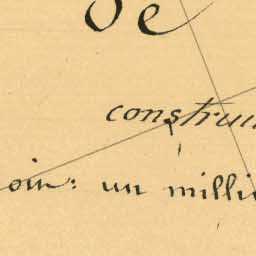 De
construi
oin: un milli